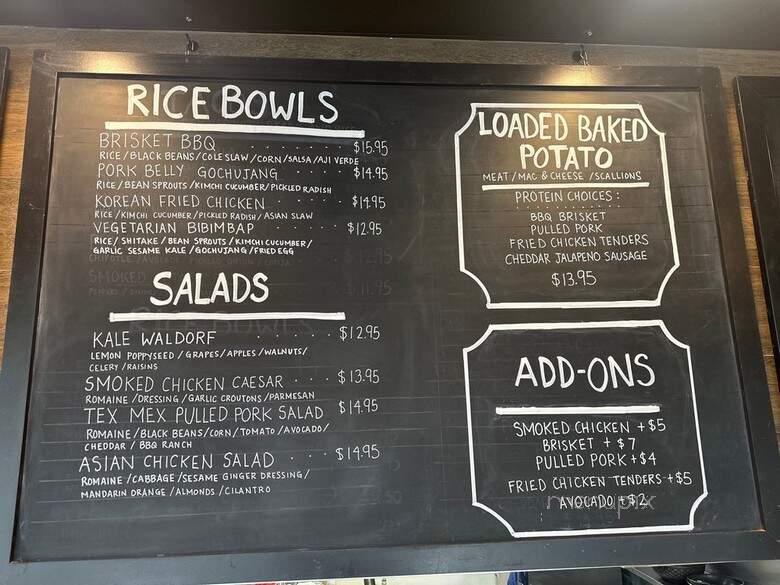 RICE BOWLS
BRISKET BBQ $15.95
RICE/BLACK BEANS/COLE SLAW/CORN/SALSA/AJI VERDE
PORK BELLY GOCHUJANG $14.95
RICE/BEAN SPROUTS/KIMCHI CUCUMBER/PICKLED RADISH
KOREAN FRIED CHICKEN $14.95
RICE/KIMCHI CUCUMBER/PICKLED RADISH/ASIAN SLAW
VEGETARIAN BIBIMBAP $12.95
RICE/SHITAKE/BEAN SPROUTS/KIMCHI CUCUMBER/
GARLIC SESAME KALE/GOCHUJANG/FRIED EGG
SALADS
KALE WALDORF $12.95
LEMON POPPYSEED/GRAPES/APPLES/WALNUTS/
CELERY/RAISINS
SMOKED CHICKEN CAESAR $13.95
ROMAINE/DRESSING/GARLIC CROUTONS/PARMESAN
TEX MEX PULLED PORK SALAD $14.95
ROMAINE/BLACK BEANS/CORN/TOMATO/AVOCADO/
CHEDDAR/BBQ RANCH
ASIAN CHICKEN SALAD $14.95
ROMAINE/CABBAGE/SESAME GINGER DRESSING/
MANDARIN ORANGE/ALMONDS/CILANTRO
LOADED BAKED
POTATO
MEAT/MAC & CHEESE/SCALLIONS
PROTEIN CHOICES:
BBQ BRISKET
PULLED PORK
FRIED CHICKEN TENDERS
CHEDDAR JALAPENO SAUSAGE
$13.95
ADD-ONS
SMOKED CHICKEN +$5
BRISKET +$7
PULLED PORK +$4
FRIED CHICKEN TENDERS +$5
AVOCADO +$2
menupix